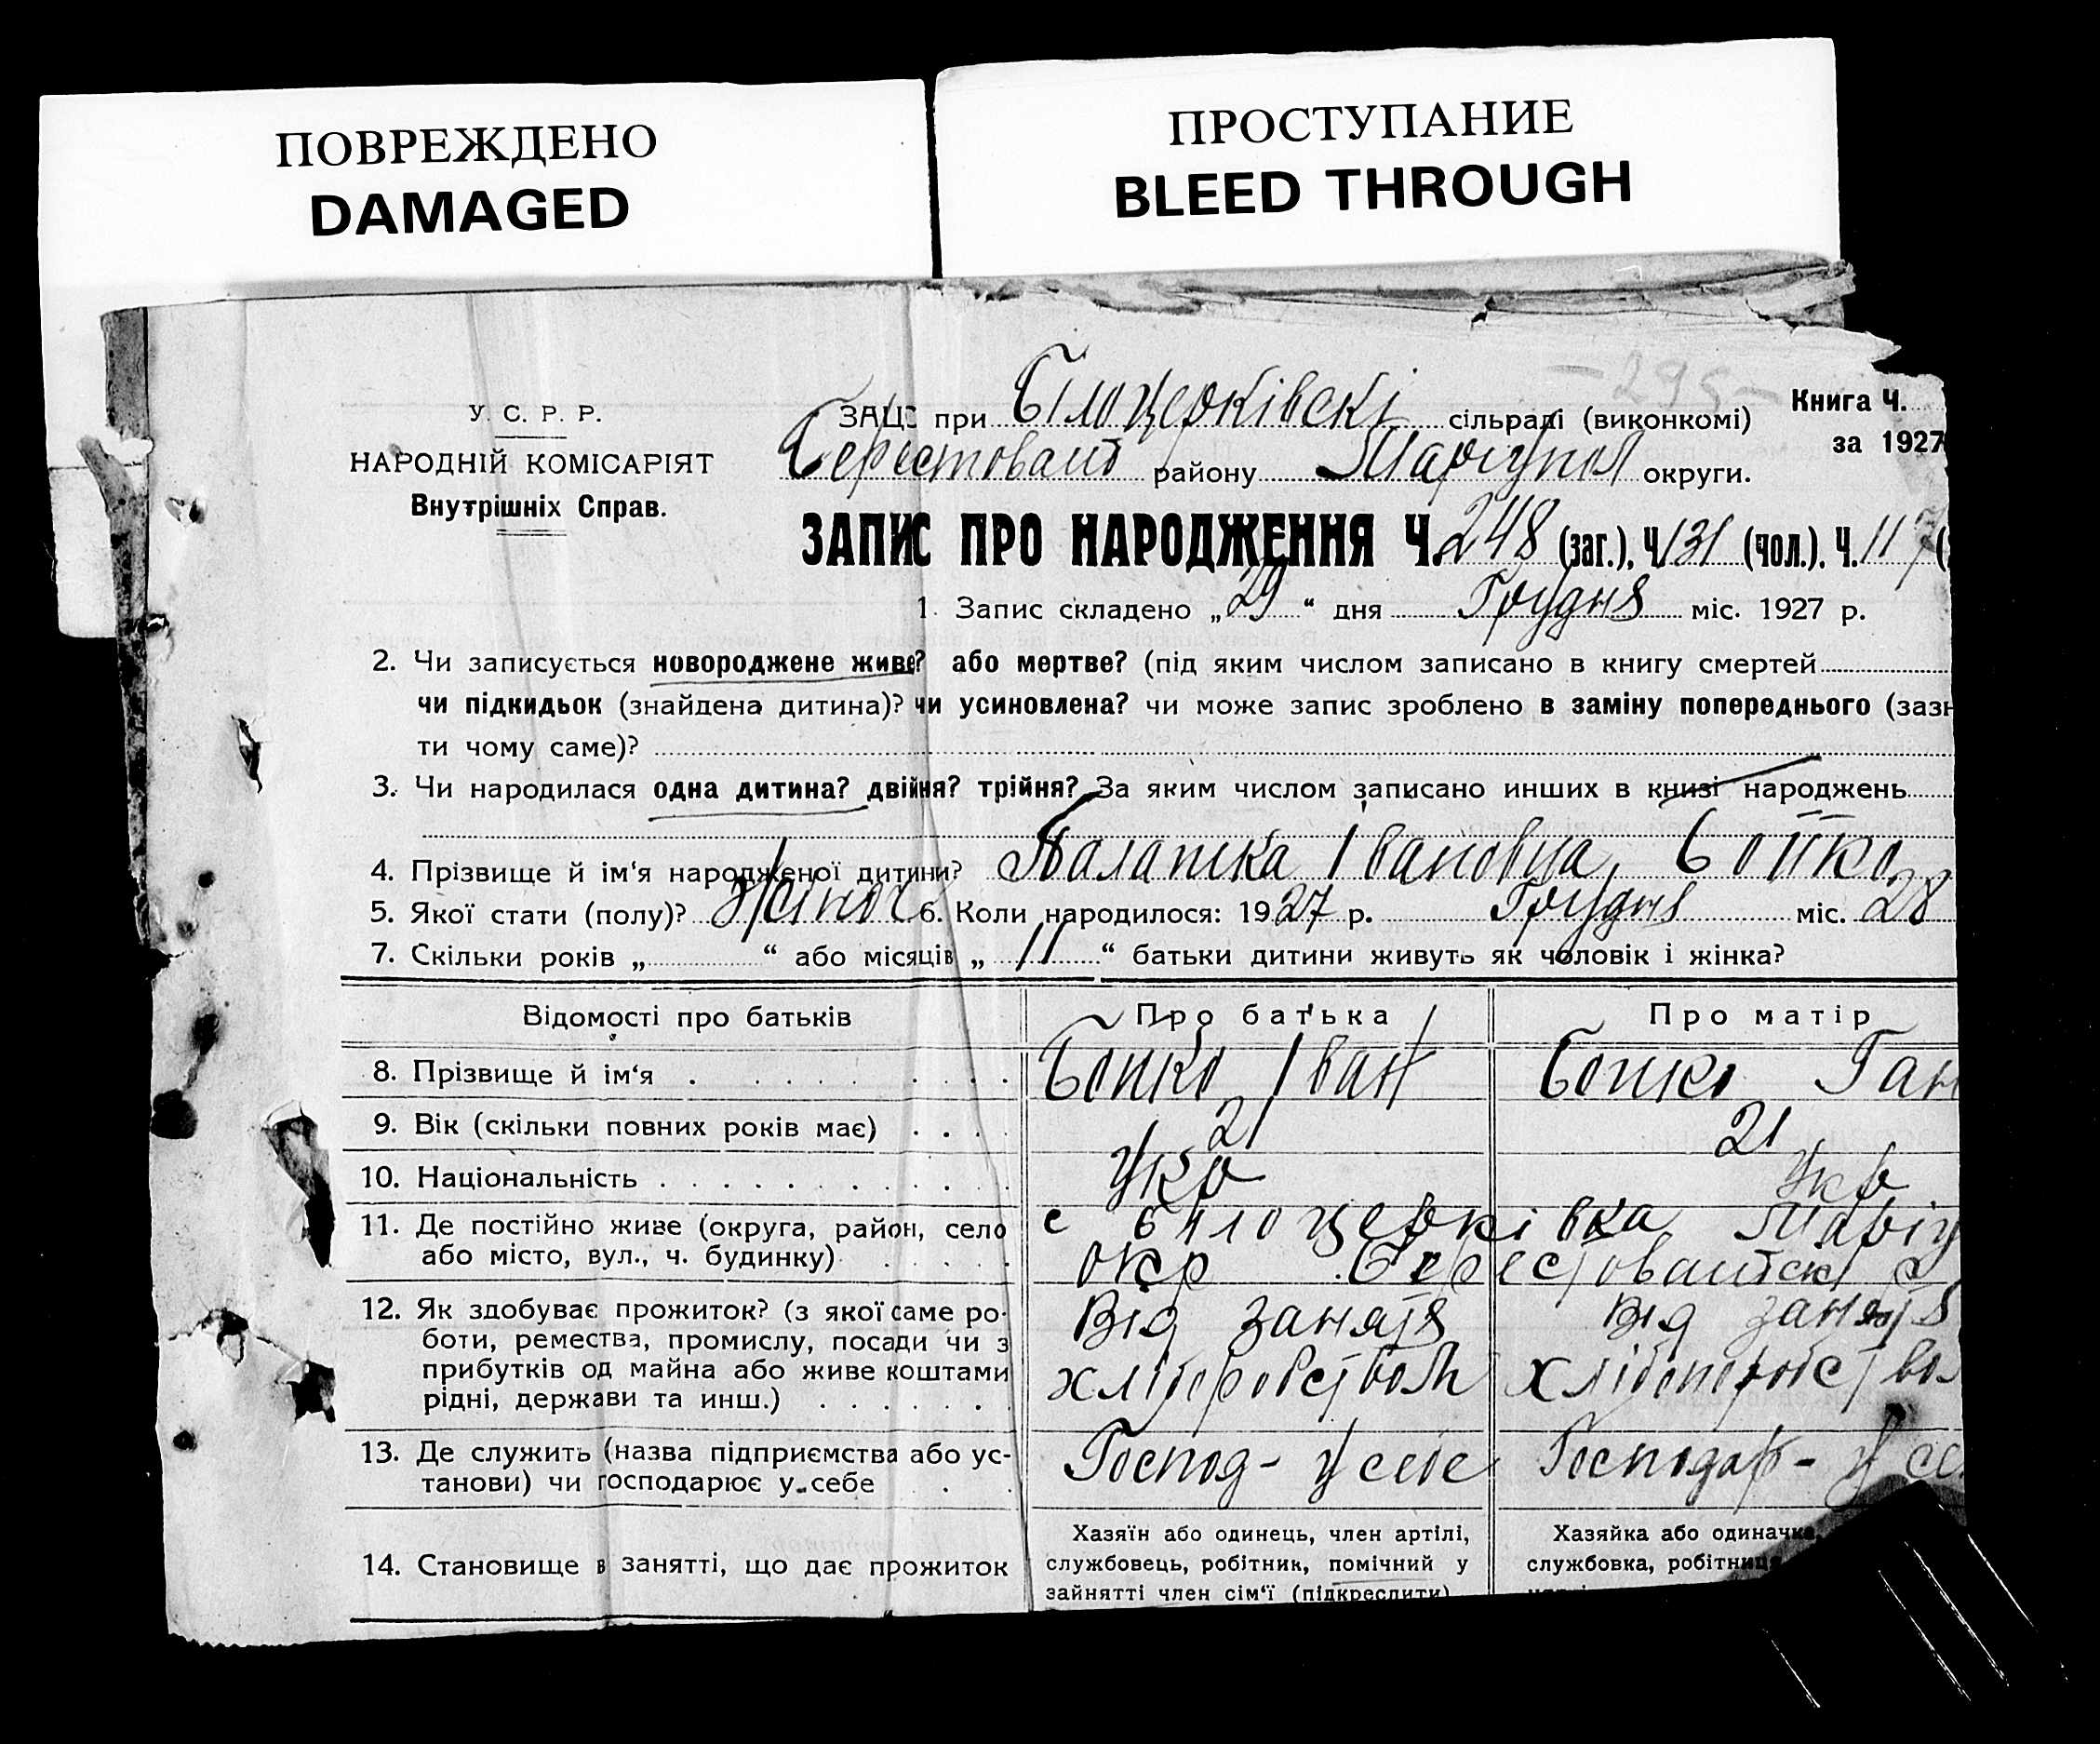 ПОВРЕЖДЕНО
DAMAGED
ПРОСТУПАНИЕ
BLEED THROUGH
- 295 -
У. С. Р. Р.
НАРОДНІЙ КОМІСАРІЯТ
Внутрішніх Справ.
Книга Ч.
за 1927
ЗАЦС при Білоцерківскі сільраді (виконкомі)
району округи.
ЗАПИС ПРО НАРОДЖЕННЯ Ч. 248 (заг.), Ч 131 (чол.). Ч. 117 (
1. Запис складено „29“ дня Грудня міс. 1927 р.
2. Чи записується новороджене живе? або мертве? (під яким числом записано в книгу смертей
чи підкидьок (знайдена дитина)? чи усиновлена? чи може запис зроблено в заміну попереднього (зазн
ти чому саме)?
3. Чи народилася одна дитина? двійня? трійня? За яким числом записано инших в книзі народжень
4. Прізвище й ім‘я народженої дитини? Палашка Івановна Бойко
5. Якої стати (полу)? жіноч 6. Коли народилося: 1927 р. Грудня міс. 28
7. Скільки років „ “ або місяців „ 11 “ батьки дитини живуть як чоловік і жінка?
Відомості про батьків Про батька Про матір
8. Прізвище й ім‘я . Бойко Іван Бойко Ган
9. Вік (скільки повних років має) 21 21
10. Національність Укр Укр
11. Де постійно живе (округа, район, село с Білоцерківка Маріу
або місто, вул., ч. будинку) окр
12. Як здобуває прожиток? (з якої саме ро- Від заняття Від заняття
боти, ремества, промислу, посади чи з
прибутків од майна або живе коштами
рідні, держави та инш.)
13. Де служить (назва підприємства або ус- Господ - у себе Господар - у се
танови) чи господарює у себе
Хазяїн або одинець, член артілі, Хазяйка або одиначка,
14. Становище в занятті, що дає прожиток службовець, робітник, помічний у службовка, робітниця
зайнятті член сім‘ї (підкреслити)